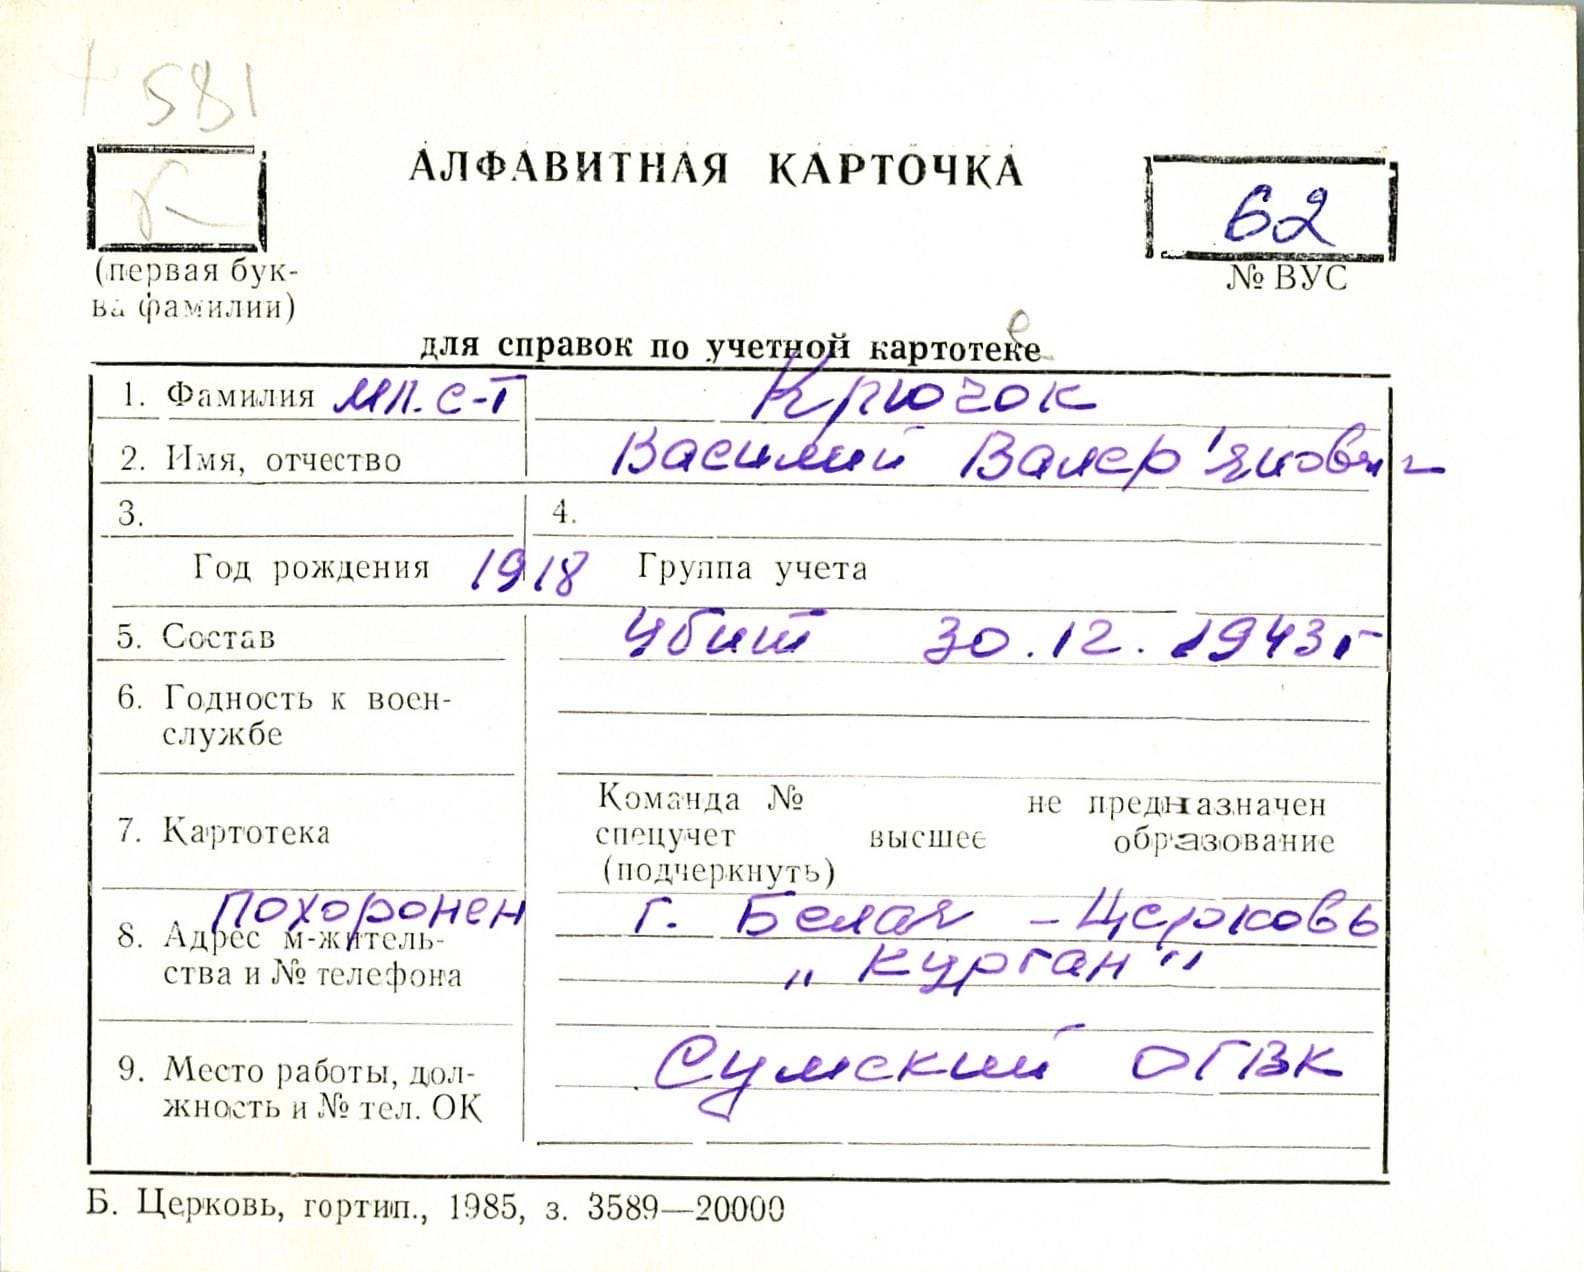 581
АЛФАВИТНАЯ КАРТОЧКА
62
(первая бук-
ва фамилии)
№ ВУС
для справок по учетной картотеке
1. Фамилия мл. с-т Крючок
2. Имя, отчество Василий Валер'янович
3. 4.
Год рождения 1918 Группа учета
5. Состав Убит 30.12.1943г
6. Годность к воен-
службе
Команда № не предназначен
7. Картотека спецучет высшее образование
(подчеркнуть)
Похоронен г. Белая - Церковь
8. Адрес м-житель-
„Курган"
ства и № телефона
Сумский ОГВК
9. Место работы, дол-
жность и № тел. ОК
Б. Церковь, гортип., 1985, з. 3589—20000